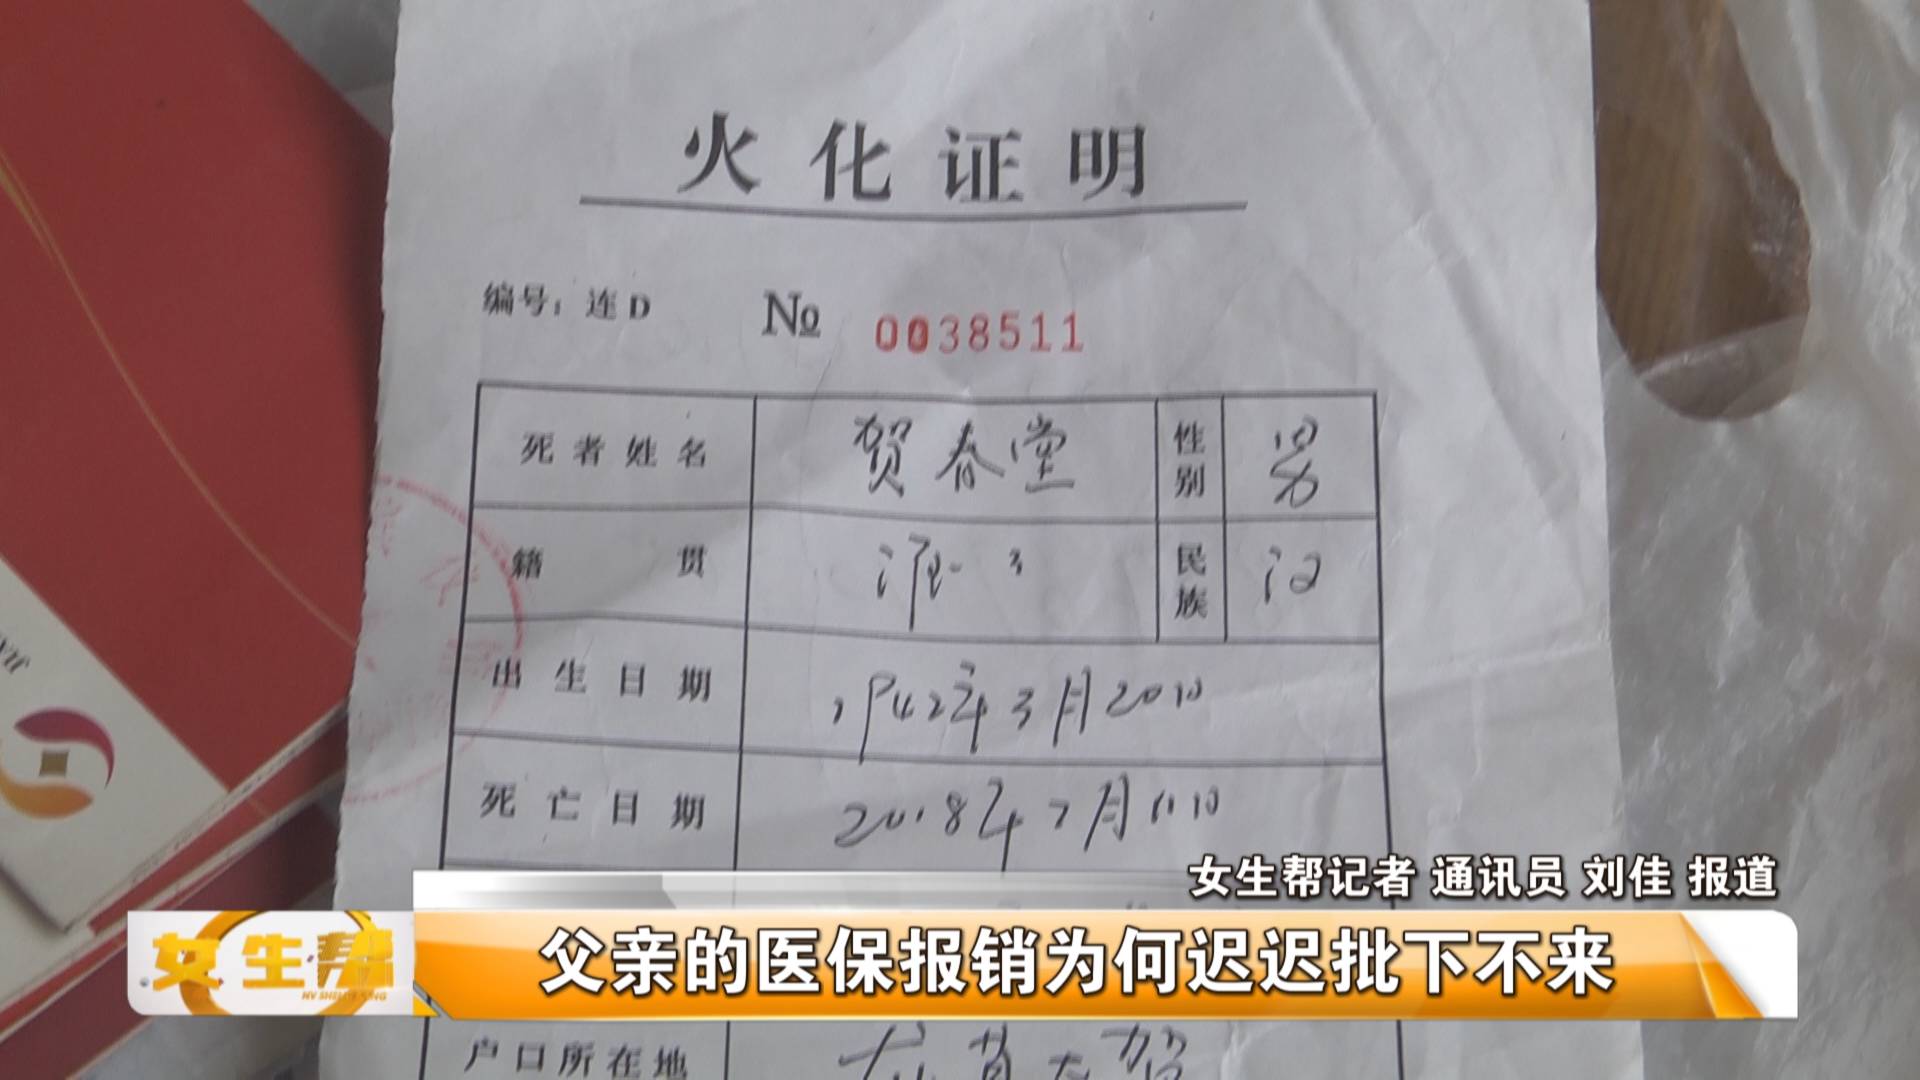 火化证明
编号：连D № 0038511
死者姓名 贺春堂 性别 男
籍贯 民族 汉
出生日期 1942年3月20日
死亡日期 2018年7月11日
女生帮记者 通讯员 刘佳 报道
女生帮 父亲的医保报销为何迟迟批下不来
NV SHENG BANG
户口所在地